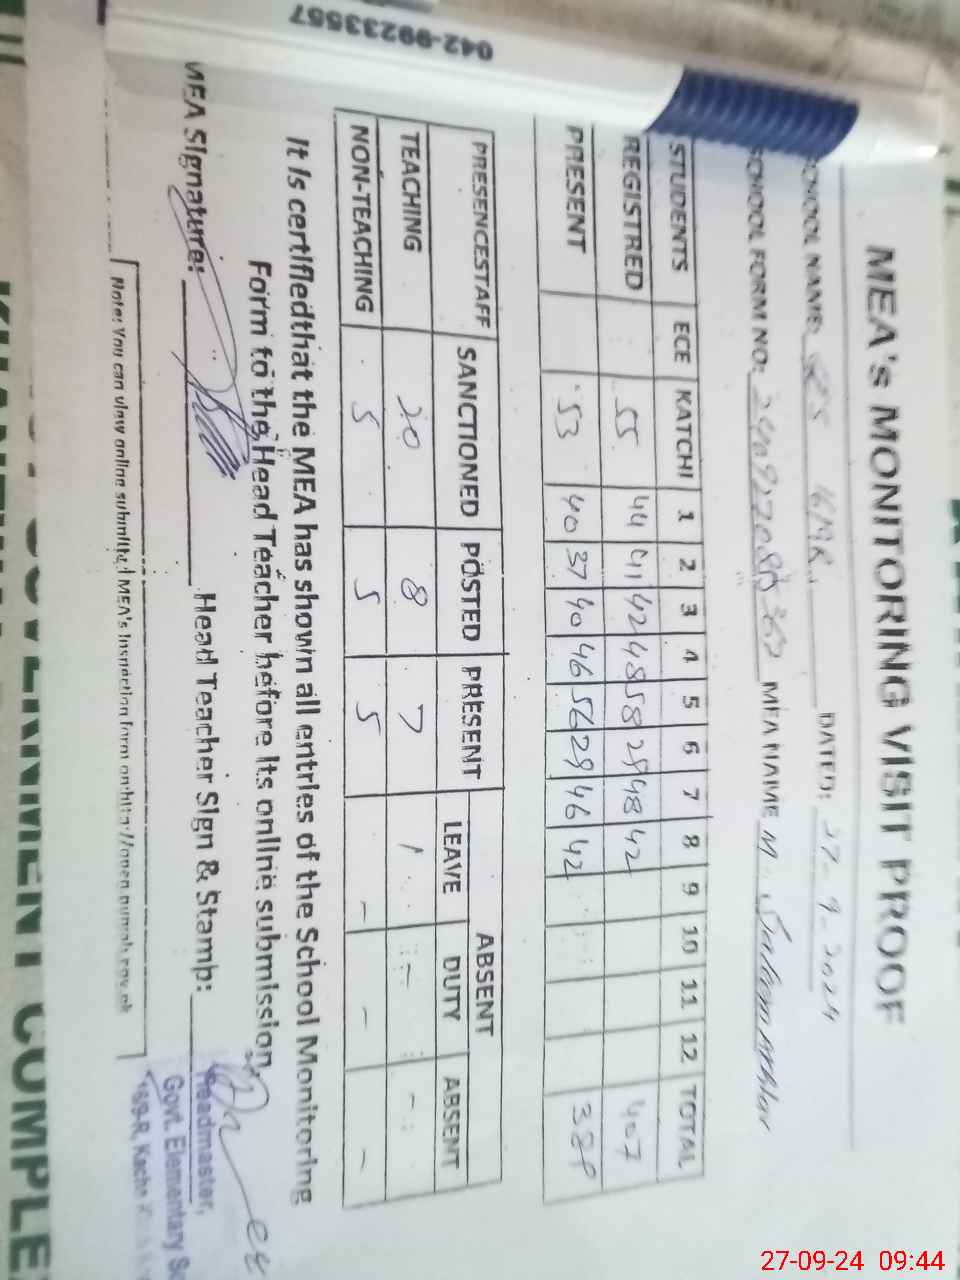 042-99233557
MEA's MONITORING VISIT PROOF
SCHOOL NAME: 16/9R. DATED: 27-9-2024
SCHOOL FORM NO: MEA NAME M.
STUDENTS ECE KATCHI 1 2 3 4 5 6 7 8 9 10 11 12 TOTAL
REGISTRED 55 44 41 42 48 58 29 48 42 407
PRESENT 53 40 37 40 46 56 29 46 42 389
PRESENCESTAFF SANCTIONED POSTED PRESENT ABSENT
LEAVE DUTY ABSENT
TEACHING 8 7 1 - -
NON-TEACHING 5 5 5 - - -
It is certifiedthat the MEA has shown all entries of the School Monitoring
Form to the Head Teacher before its online submission.
MEA Signature: Head Teacher Sign & Stamp:
Headmaster,
Govt. Elementary
16/9-R, Kacha
Note: You can view online submitted MEA's Inspection form on
GOVERNMENT COMPLE
27-09-24 09:44